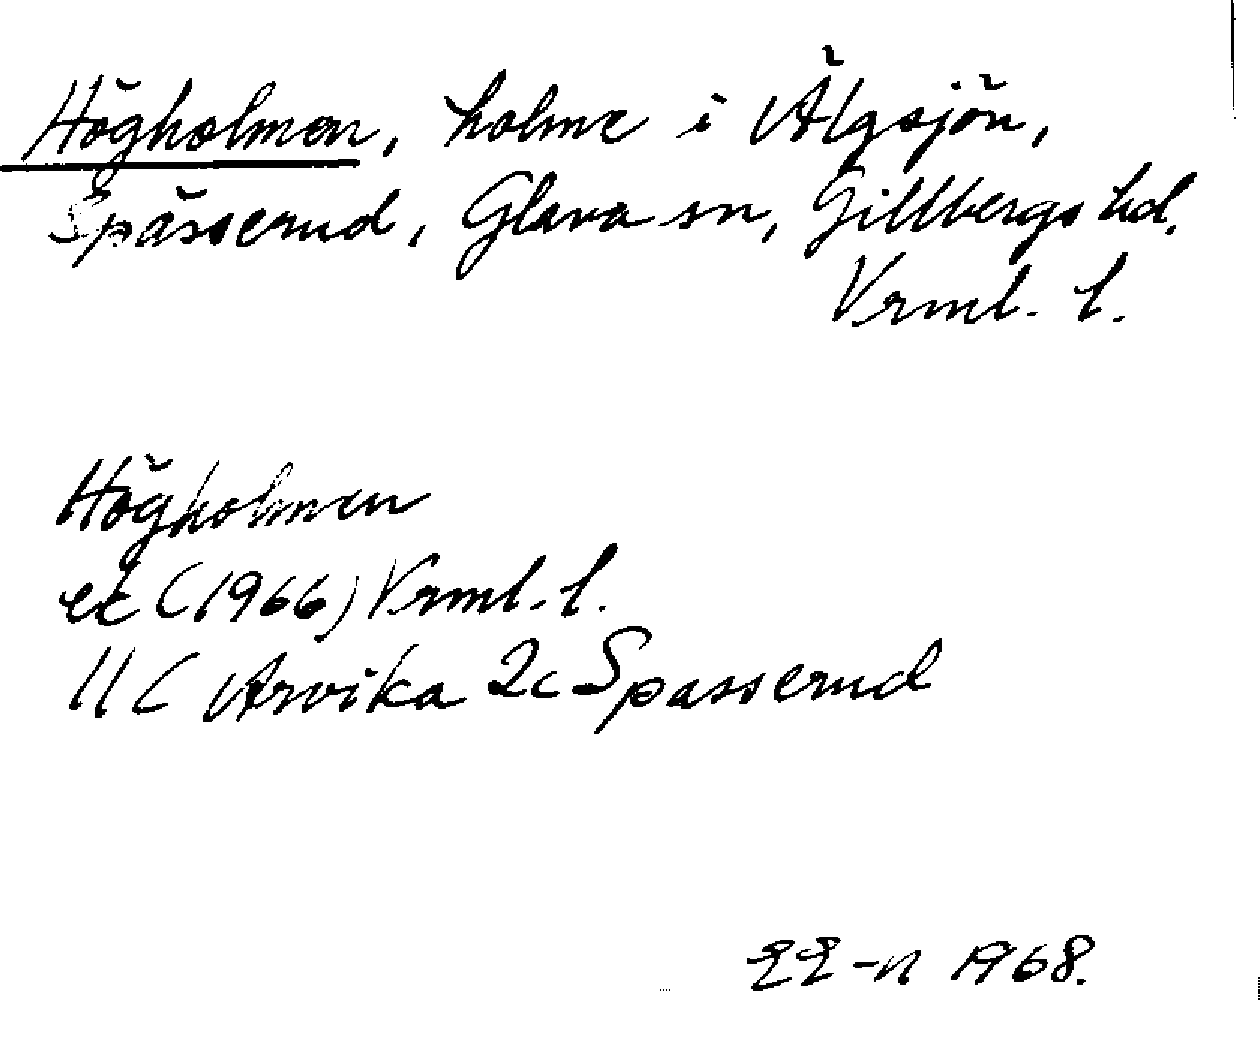 Högholmen, holme i Älgsjön,
Spässerud, Glava sn, Gillbergs hd.
Vrml. l.
Högholmen
ek (1966) Vrml. l.
11 C Arvika 2c Spässerud
-n 1968.